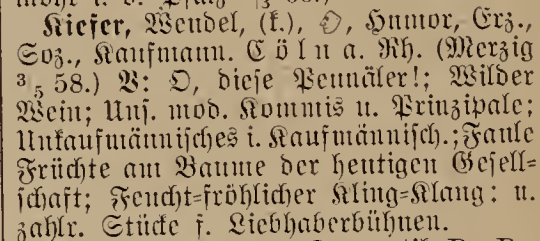 Kiefer, Wendel, (k.), Humor, Erz.,
Soz., Kaufmann. Cöln a. Rh. (Merzig
3/5 58.) V: O, diese Pennäler!; Wilder
Wein; Uns. mod. Kommis u. Prinzipale;
Unkaufmännisches i. Kaufmännisch.; Faule
Früchte am Baume der heutigen Gesell-
schaft; Feucht-fröhlicher Kling-Klang: u.
zahlr. Stücke f. Liebhaberbühnen.